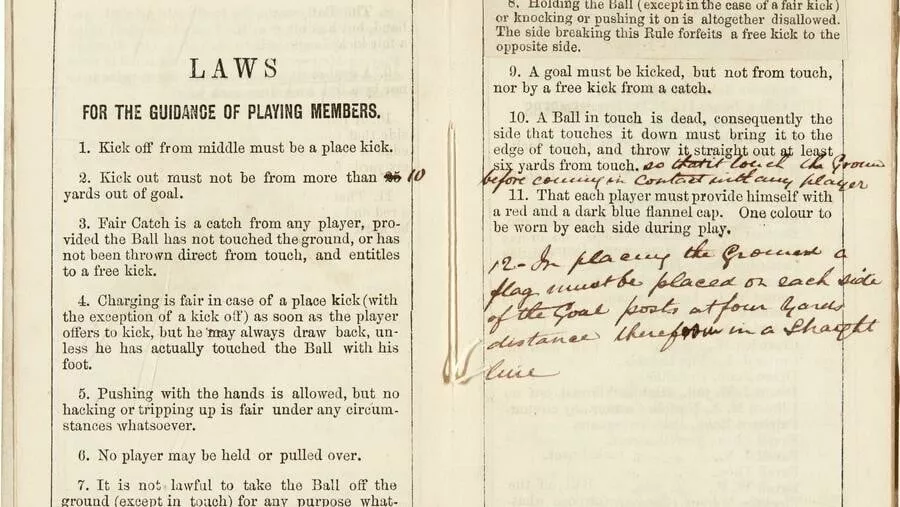 LAWS
FOR THE GUIDANCE OF PLAYING MEMBERS.
1. Kick off from middle must be a place kick.
2. Kick out must not be from more than 25 10
yards out of goal.
3. Fair Catch is a catch from any player, pro-
vided the Ball has not touched the ground, or has
not been thrown direct from touch, and entitles
to a free kick.
4. Charging is fair in case of a place kick (with
the exception of a kick off) as soon as the player
offers to kick, but he may always draw back, un-
less he has actually touched the Ball with his
foot.
5. Pushing with the hands is allowed, but no
hacking or tripping up is fair under any circum-
stances whatsoever.
6. No player may be held or pulled over.
7. It is not lawful to take the Ball off the
ground (except in touch) for any purpose what-
8. Holding the Ball (except in the case of a fair kick)
or knocking or pushing it on is altogether disallowed.
The side breaking this Rule forfeits a free kick to the
opposite side.
9. A goal must be kicked, but not from touch,
nor by a free kick from a catch.
10. A Ball in touch is dead, consequently the
side that touches it down must bring it to the
edge of touch, and throw it straight out at least
six yards from touch. so that it touch the Groun
before coming in contact with any player
11. That each player must provide himself with
a red and a dark blue flannel cap. One colour to
be worn by each side during play.
12- In placing the Ground a
flag must be placed on each side
of the Goal posts at four yards
distance therefrom in a Straight
line